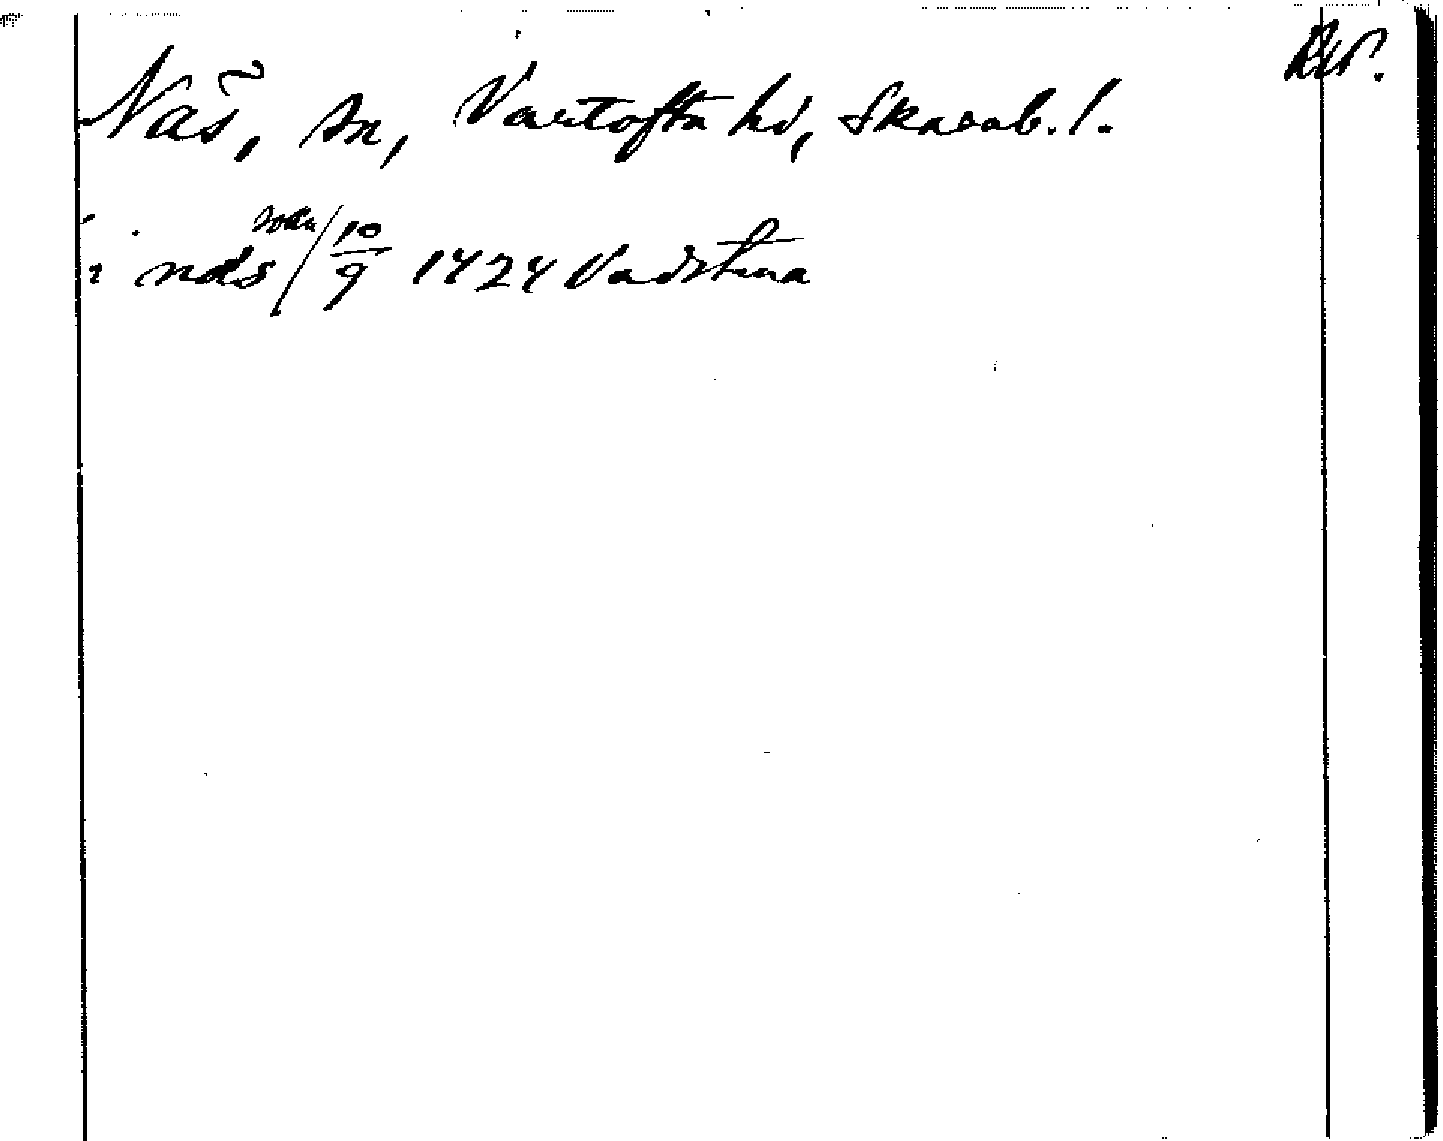 Näs, sn, Vartofta hd, Skarab. l.
i näs 10/9 1424 Vadstena